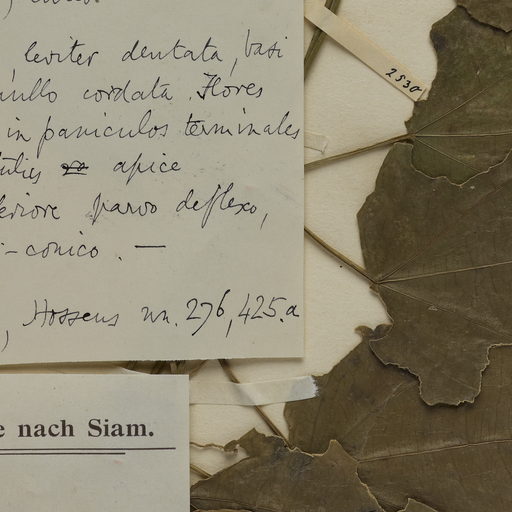 , leviter dentata, basi
cordata. Flores
in paniculos terminales
apice
parvo deflexo,
-conico. —
, Hosseus nn. 276, 425.a
2530
e nach Siam.